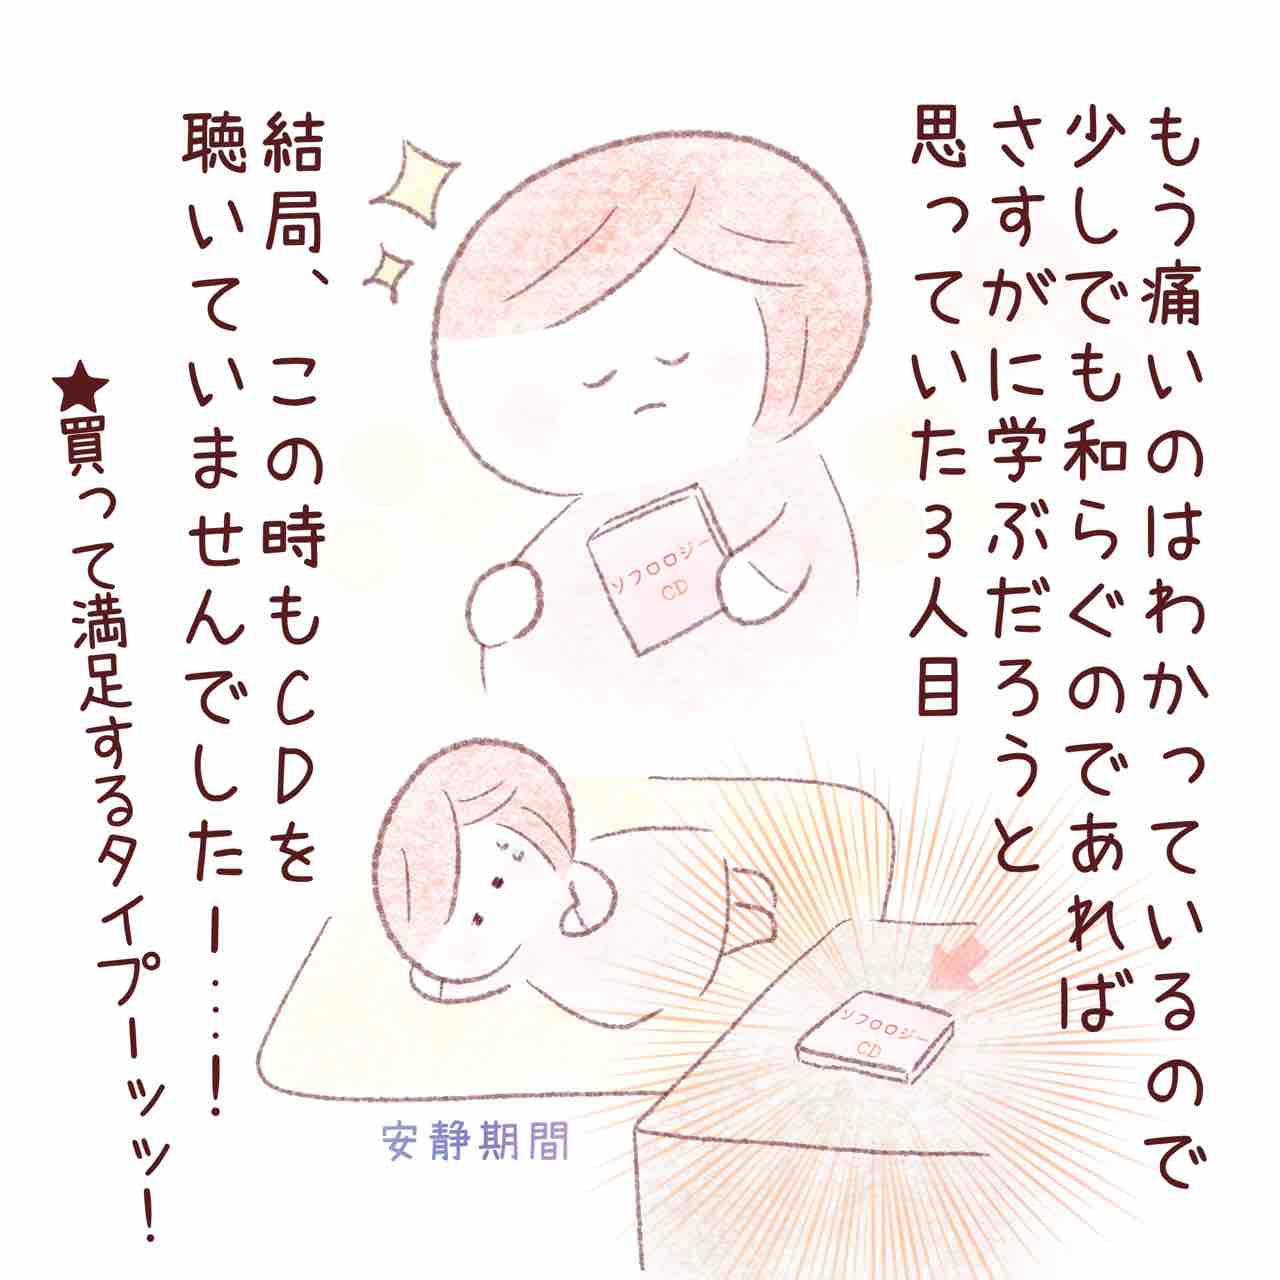 もう痛いのはわかっているので
少しでも和らぐのであれば
さすがに学ぶだろうと
思っていた3人目
ソフロロジー
CD
結局、この時もCDを
聴いていませんでしたー……!
★買って満足するタイプーッッ!
ソフロロジー
CD
安静期間